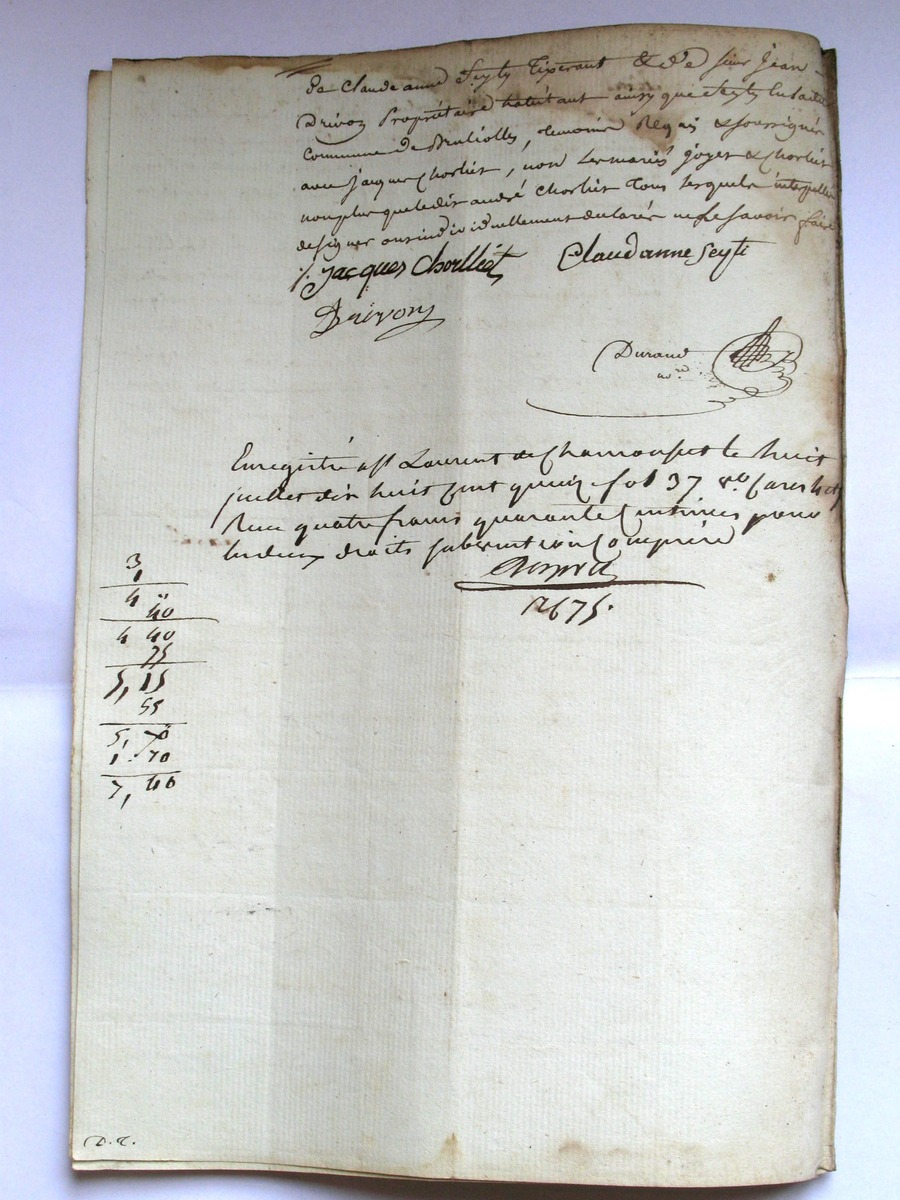 De Claude anne Seyty Tixerant & de sieur Jean
Drivon Propriétaire habitant ainsy que Seyty en laditte
Commune de Brulliolles, temoins Requis & soussignés
avec jacques Chorliet, non les mariés joyet & Chorliet
non plus que ledit andré Chorliet Tous lesquels interpellés
de signer ont individuellement declarés ne le savoir faire
/. jacques Chorlliet Claudanne Seyti
Drivon
Durand
no.re
Enregistré a St Laurent de Chamousset le huit
juillet dix huit cent quinze fol 37 Ro Cases 4 et
Recu quatre francs quarante centimes pour
les deux droits subvention comprise
12675.
3
1
4 "
40
4 40
75
5, 15
55
5, 70
1. 70
7, 40
D. R.